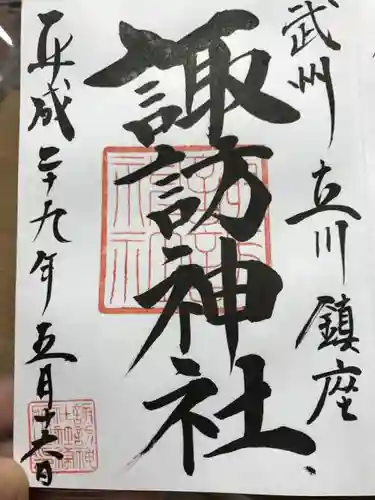 武州 立川 鎮座
諏訪神社
平成二十九年五月十六日